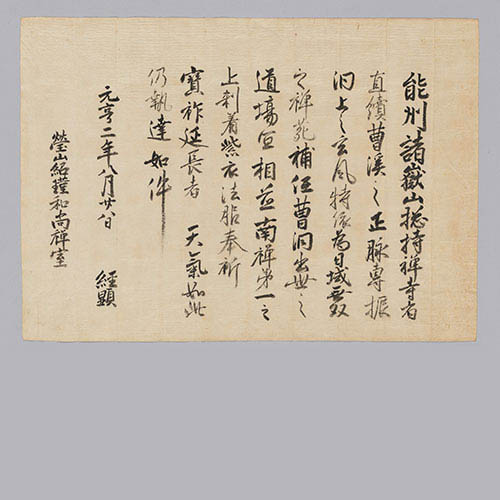 能州諸嶽山捴持禅寺者
直續曹溪之正脉專振
洞上之玄風特依為日域無双
之禅苑補任曹洞出世之
道場宜相並南禅第一之
上刹着紫衣法服奉祈
寶祚延長者　天氣如此
仍執達如件
元亨二年八月廿八日　經顯
瑩山紹瑾和尚禅室